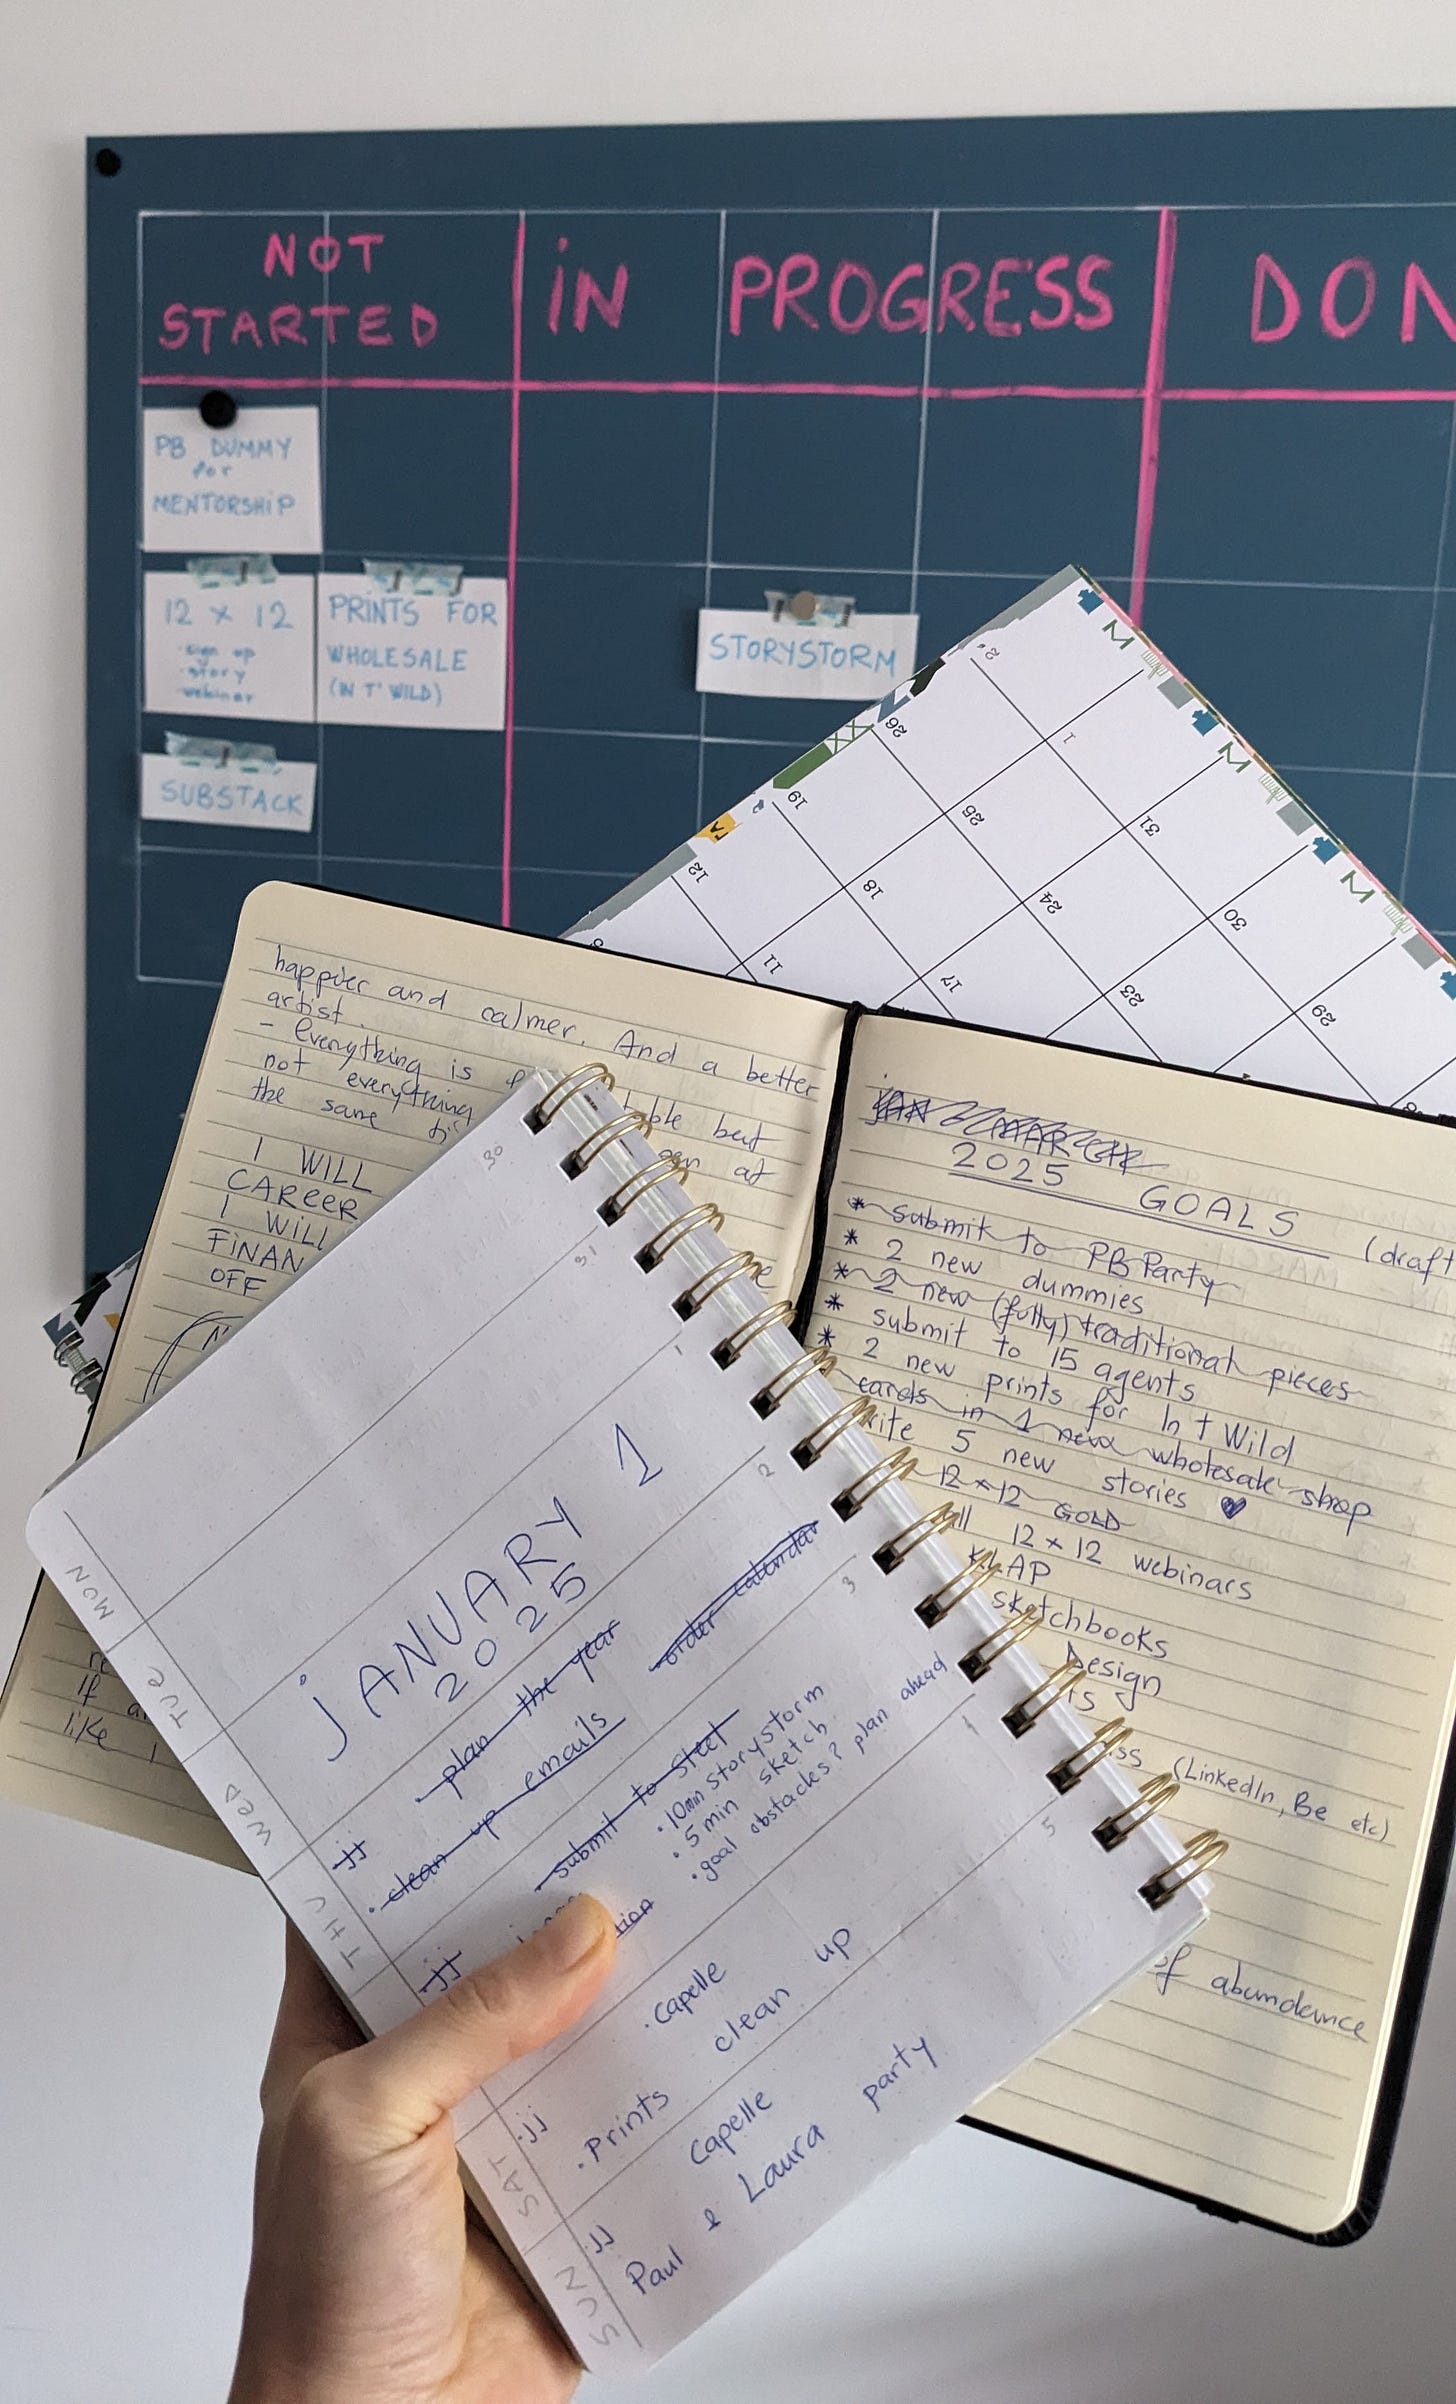 NOT
STARTED
IN PROGRESS
DON
PB DUMMY
for
MENTORSHIP
12 x 12
• sign up
• story
• webinar
PRINTS FOR
WHOLESALE
(IN T' WILD)
SUBSTACK
STORYSTORM
M
M
M
26
1
19
25
31
12
18
24
30
11
17
23
29
happier and calmer. And a better
artist.
- Everything is
table but
not everything
at
the same
I WILL
CAREER
I WILL
FINAN
OFF
If
like I
2025 GOALS (draft
* submit to PB Party
* 2 new dummies
* 2 new (fully) traditional pieces
* submit to 15 agents
* 2 new prints for In t Wild
cards in 1 new wholesale shop
5 new stories ♥
12 x 12 GOLD
12 x 12 webinars
sketchbooks
Design
(LinkedIn, Be etc)
of abundance
30
31
1
2
3
4
5
MON
TUE
WED
THU
SAT
SUN
JANUARY 1
2025
jj
• plan the year
order calendar
• clean up emails
jj
submit to steet
• 10min storystorm
• 5 min sketch
• goal obstacles? plan ahead
• Capelle
clean up
• jj
• Prints
Capelle
• jj
Paul & Laura party